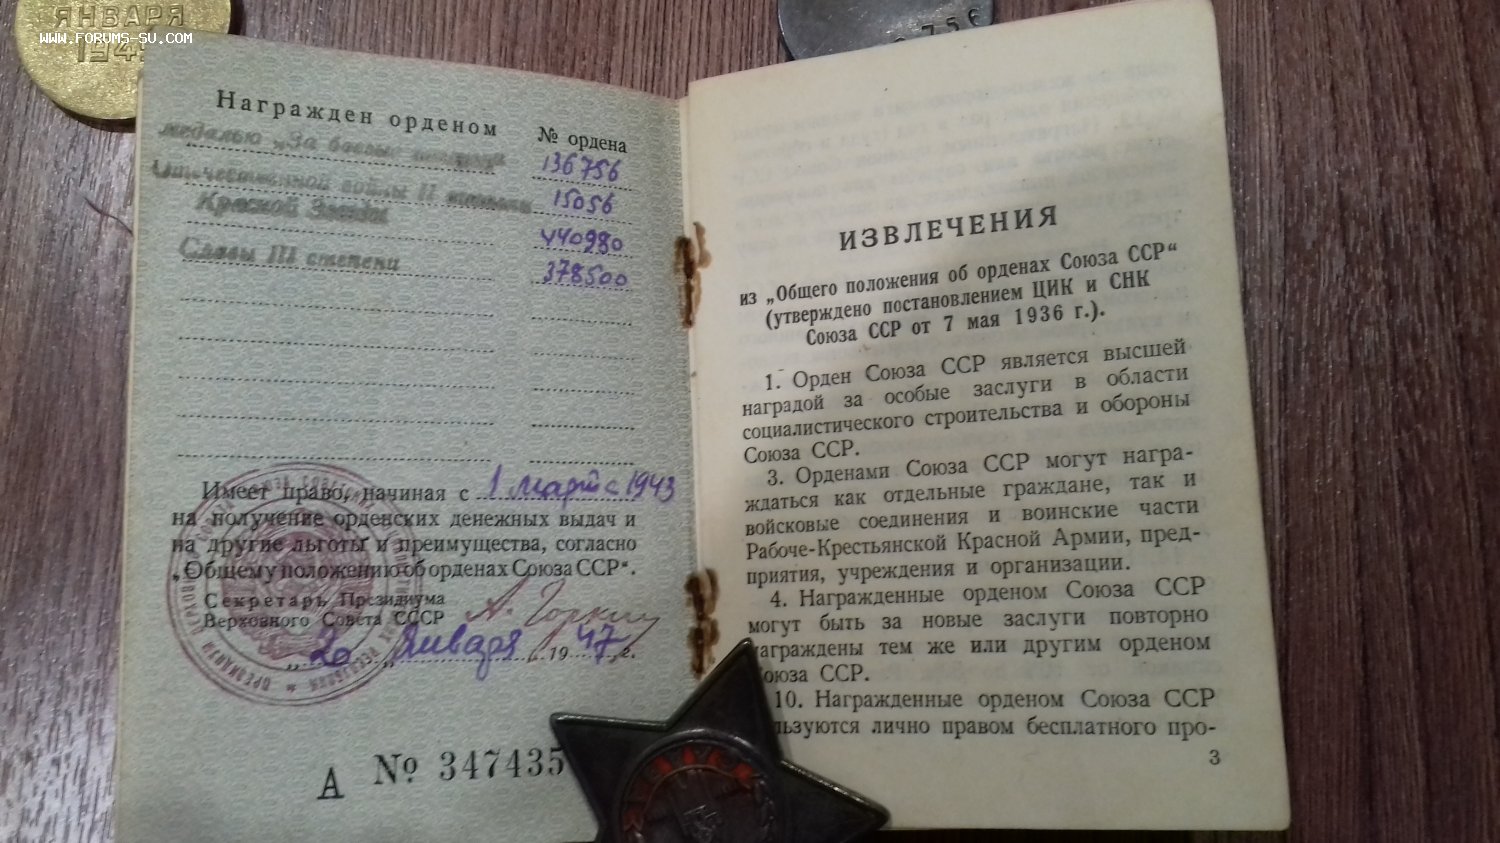 ЯНВАРЯ
WWW.FORUMS-SU.COM
194
756
Награжден орденом
№ ордена
медалью „За боевые заслуги
136756
Отечественной войны II степени
15056
Красной Звезды
440980
Славы III степени
378500
Имеет право, начиная с 1 марта 1943
на получение орденских денежных выдач и
на другие льготы и преимущества, согласно
„Общему положению об орденах Союза ССР“.
Секретарь Президиума
Верховного Совета СССР А. Горкин
„20„ Января 1947 г.
А № 347435
ИЗВЛЕЧЕНИЯ
из „Общего положения об орденах Союза ССР“
(утверждено постановлением ЦИК и СНК
Союза ССР от 7 мая 1936 г.).
1. Орден Союза ССР является высшей
наградой за особые заслуги в области
социалистического строительства и обороны
Союза ССР.
3. Орденами Союза ССР могут награ-
ждаться как отдельные граждане, так и
войсковые соединения и воинские части
Рабоче-Крестьянской Красной Армии, пред-
приятия, учреждения и организации.
4. Награжденные орденом Союза ССР
могут быть за новые заслуги повторно
награждены тем же или другим орденом
Союза ССР.
10. Награжденные орденом Союза ССР
льзуются лично правом бесплатного про-
3